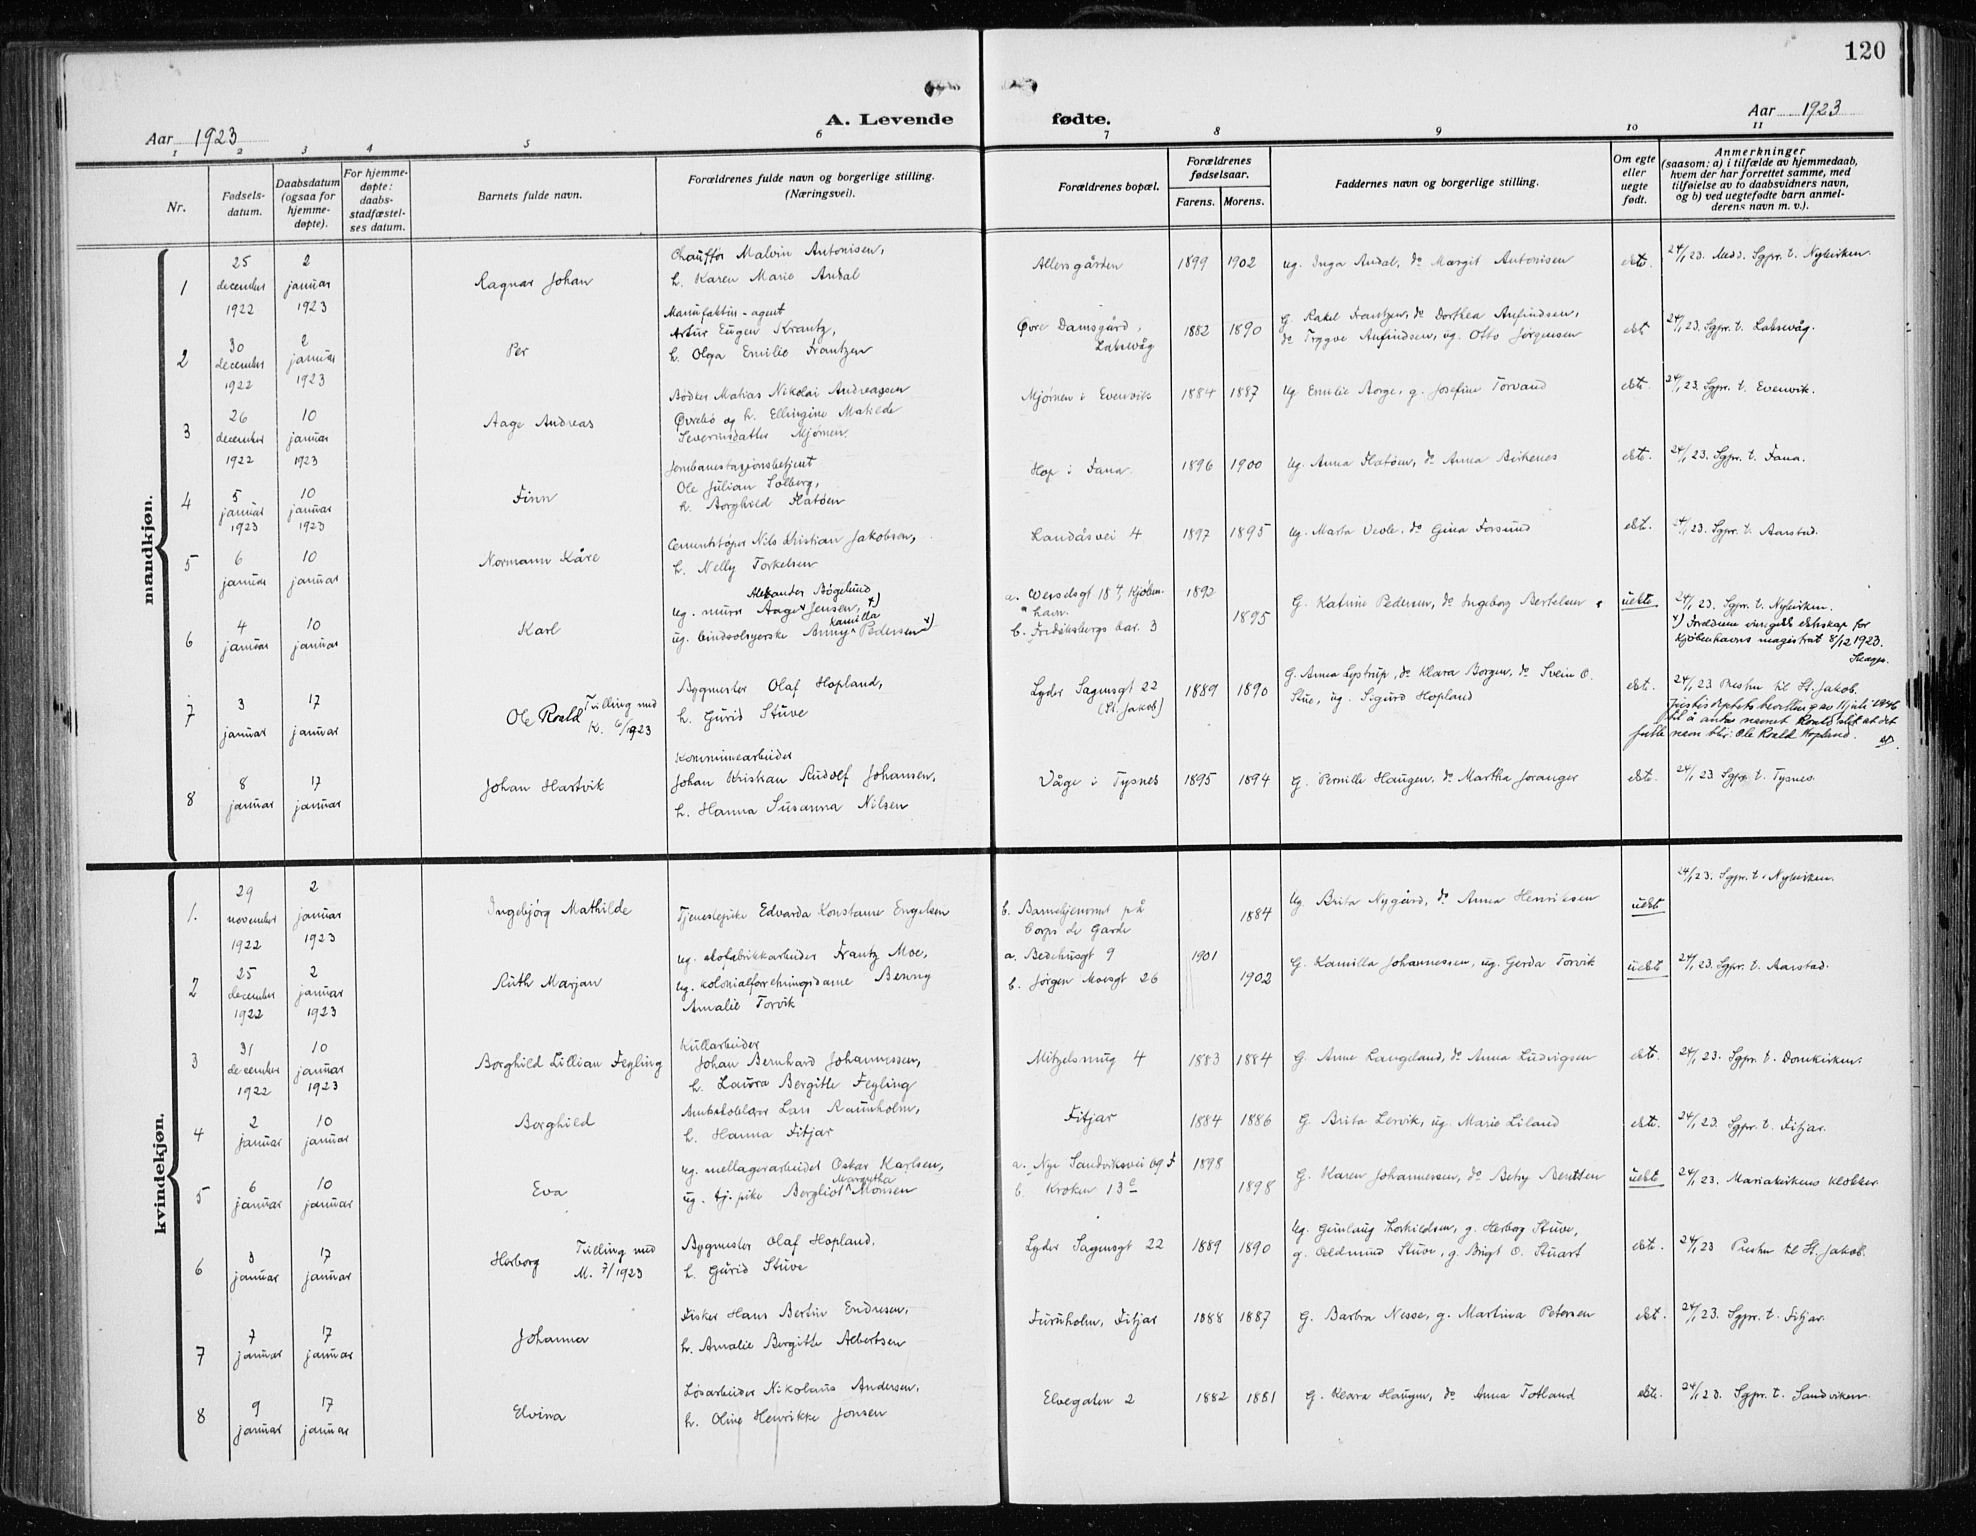 120
A. Levende fødte.
Aar 1923
Aar 1923
1 2 3 4 5 6 7 8 9 10 11
Nr.
Fødsels-
datum.
Daabsdatum
(ogsaa for
hjemme-
døpte).
For hjemme-
døpte:
daabs-
stadfæstel-
ses datum.
Barnets fulde navn.
Forældrenes fulde navn og borgerlige stilling.
(Næringsvei).
Forældrenes bopæl.
Forældrenes
fødselsaar.
Farens. Morens.
Faddernes navn og borgerlige stilling.
Om egte
eller
uegte
født.
Anmerkninger
(saasom: a) i tilfælde av hjemmedaab,
hvem der har forrettet samme, med
tilføielse av to daabsvidners navn,
og b) ved uegtefødte barn anmel-
derens navn m. v.).
mandkjøn.
1
25
december
1922
2
januar
1923
Ragnar Johan
Chauffør Malvin Antonisen,
h. Karen Marie Andal
Allersgården
1899 1902
Ug. Inga Andal, do Margit Antonisen
ekte.
24/1 23. Medd. Sgpr. t. Nykirken.
2
30
december
1922
2
januar
1923
Per
Manufaktur-agent
Artur Eugen Krantz,
h. Olga Emilie Frantzen
Øvre Damsgård,
Laksevåg
1882 1890
G. Rakel Frantzen, do Dorthea Anfindsen,
do Trygve Anfindsen, ug. Otto Jørgensen
ekt
24/1 23. Sgpr. t. Laksevåg.
3
26
december
1922
10
januar
1923
Aage Andreas
Bødker Matias Nikolai Andreassen
Øvrebø og h. Ellingine Matilde
Severinsdatter Mjømen
Mjømen i Evenvik
1884 1887
Ug Emilie Borge, g. Josefine Torvand
ekte.
24/1 23. Sgpr. t. Evenvik.
4
5
januar
1923
10
januar
1923
Finn
Jernbanestasjonsbetjent
Ole Julian Solberg,
h. Borghild Flatøen
Hop i Fana.
1896 1900
Ug. Anna Flatøen, do Anna Birkenes
ekte.
24/1 23. Sgpr. t. Fana.
5
6
januar
10
januar
Normann Kåre
Cementstøper Nils Kristian Jakobsen,
h. Nelly Torkelsen
Landåsvei 4
1897 1895
Ug. Marta Vedle, do Gina Forsund
ekt.
24/1 23. Sgpr. t. Aarstad.
6
4
januar
10
januar
Karl
Alexander Bøgelund
Ug. murer Aage Jensen, +)
Kamilla
ug. bindsolsyerske Anny Pedersen +)
a. Wesselsgt 18 4, Kjøben-
havn.
b. Fredriksbergs bar. 3
1892
1895
G. Katrine Pedersen, do Ingeborg Bertelsen
uekte
24/1 23. Sgpr. t. Nykirken.
+) Foreldrene inngikk ekteskap for
Kjøbenhavns magistrat 8/12 1923.
7
3
januar
17
januar
Ole Roald
Tvilling med
K. 6/1923
Bygmester Olaf Hopland,
h. Gurid Stuve
Lyder Sagensgt 22
(St. Jakob)
1889 1890
G. Anna Lystrup, do Klara Borgen, do Svein O.
Stue, ug. Sigurd Hopland
ekt.
24/1 23 Presten til St. Jakob.
Justisdeptets bevilling av 11 juli 1946
til å anta navnet Roald slik at det
fulle navn blir: Ole Roald Hopland.
8
8
januar
17
januar
Johan Hartvik
Kommunearbeider
Johan Kristian Rudolf Johansen,
h. Hanna Susanna Nilsen
Våge i Tysnes
1895 1894
G. Pernille Haugen, do Martha Joranger
ekt.
24/1 23 Sgpr. t. Tysnes.
kvindekjøn.
1.
29
november
1922
2
januar
1923
Ingebjørg Mathilde
Tjenestepike Edvarda Konstanse Engelsen
b. Barnehjemmet på
Corps de Garde
1884
Ug. Brita Nygård, do Anna Henriksen
uekt
24/1 23. Sgpr. t. Nykirken.
2
25
december
1922
2
januar
1923
Ruth Marjan
Ug. skofabrikkarbeider Frantz Moe,
ug. kolonialforretningsdame Benny
Amalie Torvik
a. Bedehusgt 9
b. Jørgen Moesgt 26
1901
1902
G. Kamilla Johannessen, ug. Gerda Torvik
uekte
24/1 23. Sgpr. t. Aarstad.
3
31
december
1922
10
januar
1923
Borghild Lillian Fegling
Kullarbeider
Johan Bernhard Johannessen,
h. Laura Bergitte Fegling
Mitzelsmug 4
1883 1884
G. Anne Langeland, do Anna Ludvigsen
ekt.
24/1 23. Sgpr. t. Domkirken.
4
2
januar
10
januar
Borghild
Lars Raunholm,
h. Hanna Fitjar
Fitjar
1884 1886
G. Brita Lervik, ug. Marie Liland
ekt.
24/1 23. Sgpr. t. Fitjar.
5
6
januar
10
januar
Eva
Ug. møllagerarbeider Oskar Karlsen,
Margretha
ug. tj. pike Bergliot Monsen
a. Nye Sandviksvei 69 F
b. Kroken 13 c
1898
1898
G. Karen Johannessen, do Betzy Berntsen
uekt
24/1 23. Mariakirkens klokker.
6
3
januar
17
januar
Herborg
Tvilling med
M. 7/1923
Bygmester Olaf Hopland,
h. Gurid Stuve
Lyder Sagensgt 22
1889 1890
Ug. Gunlaug Thorkildsen, g. Herborg Stuve,
g. Oddmund Stuve, g. Brigt O. Stuart
ekt.
24/1 23 Presten til St. Jakob.
7
7
januar
17
januar
Johanna
Fisker Hans Bertin Endresen,
h. Amalie Bergitte Albertsen
Furuholm, Fitjar
1888 1887
G. Barbra Nesse, g. Martina Petersen
ekt.
24/1 23. Sgpr. t. Fitjar.
8
9
januar
17
januar
Elvina
Løsarbeider Nikolaus Andersen,
h. Oline Henrikke Jonsen
Elvegaten 2
1882 1881
G. Klara Haugen, do Anna Totland
ekt.
24/1 23. Sgpr. t. Sandviken.